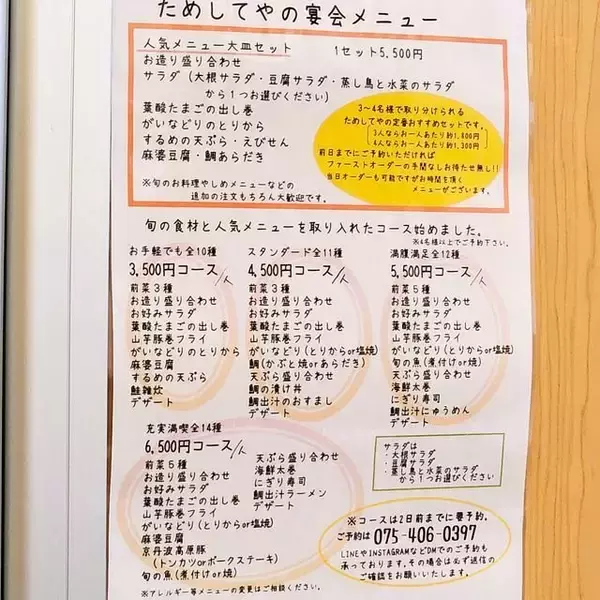 ためしてやの宴会メニュー
人気メニュー大皿セット 1セット5,500円
お造り盛り合わせ
サラダ(大根サラダ・豆腐サラダ・蒸し鳥と水菜のサラダ
から1つお選びください)
葉酸たまごの出し巻
がいなどりのとりから
するめの天ぷら・えびせん
麻婆豆腐・鯛あらだき
※旬のお料理やしめメニューなどの
追加の注文ももちろん大歓迎です。
3~4名様で取り分けられる
ためしてやの定番おすすめセットです。
3人ならお一人あたり約1,800円
4人ならお一人あたり約1,300円
前日までにご予約いただければ
ファーストオーダーの手間なしお待たせ無し!!
当日オーダーも可能ですがお時間を頂く
メニューがございます。
旬の食材と人気メニューを取り入れたコース始めました。
※4名様以上でご予約下さい。
お手軽でも全10種
3,500円コース/人
前菜3種
お造り盛り合わせ
お好みサラダ
葉酸たまごの出し巻
山芋豚巻フライ
がいなどりのとりから
麻婆豆腐
するめの天ぷら
鮭雑炊
デザート
スタンダード全11種
4,500円コース/人
前菜3種
お造り盛り合わせ
お好みサラダ
葉酸たまごの出し巻
山芋豚巻フライ
がいなどり(とりからor塩焼)
鯛(かぶと焼orあらだき)
天ぷら盛り合せ
鯛の漬け丼
鯛出汁のおすまし
デザート
満腹満足全12種
5,500円コース/人
前菜5種
お造り盛り合わせ
お好みサラダ
葉酸たまごの出し巻
山芋豚巻フライ
がいなどり(とりからor塩焼)
旬の魚(煮付けor焼)
天ぷら盛り合せ
海鮮太巻
にぎり寿司
鯛出汁にゅうめん
デザート
充実満喫全14種
6,500円コース/人
前菜5種
お造り盛り合わせ
お好みサラダ
葉酸たまごの出し巻
山芋豚巻フライ
がいなどり(とりからor塩焼)
麻婆豆腐
京丹波高原豚
(トンカツorポークステーキ)
旬の魚(煮付けor焼)
天ぷら盛り合せ
海鮮太巻
にぎり寿司
鯛出汁ラーメン
デザート
※アレルギー等メニューの変更はご相談ください。
サラダは
・大根サラダ
・豆腐サラダ
・蒸し鳥と水菜のサラダ
から1つお選びください
※コースは2日前までに要予約。
ご予約は 075-406-0397
LINEやINSTAGRAMなどDMでのご予約も
承っております。その場合は必ず返信の
ご確認をお願いいたします。